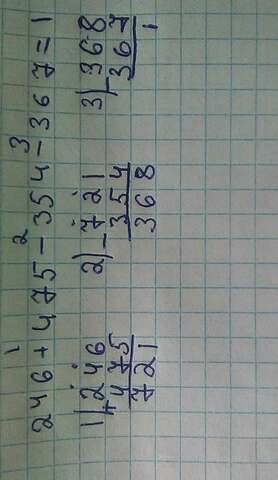 1 2 3
246 + 475 - 354 - 367 = 1
1) + 246
475
721
2) - 721
354
368
3) - 368
367
1